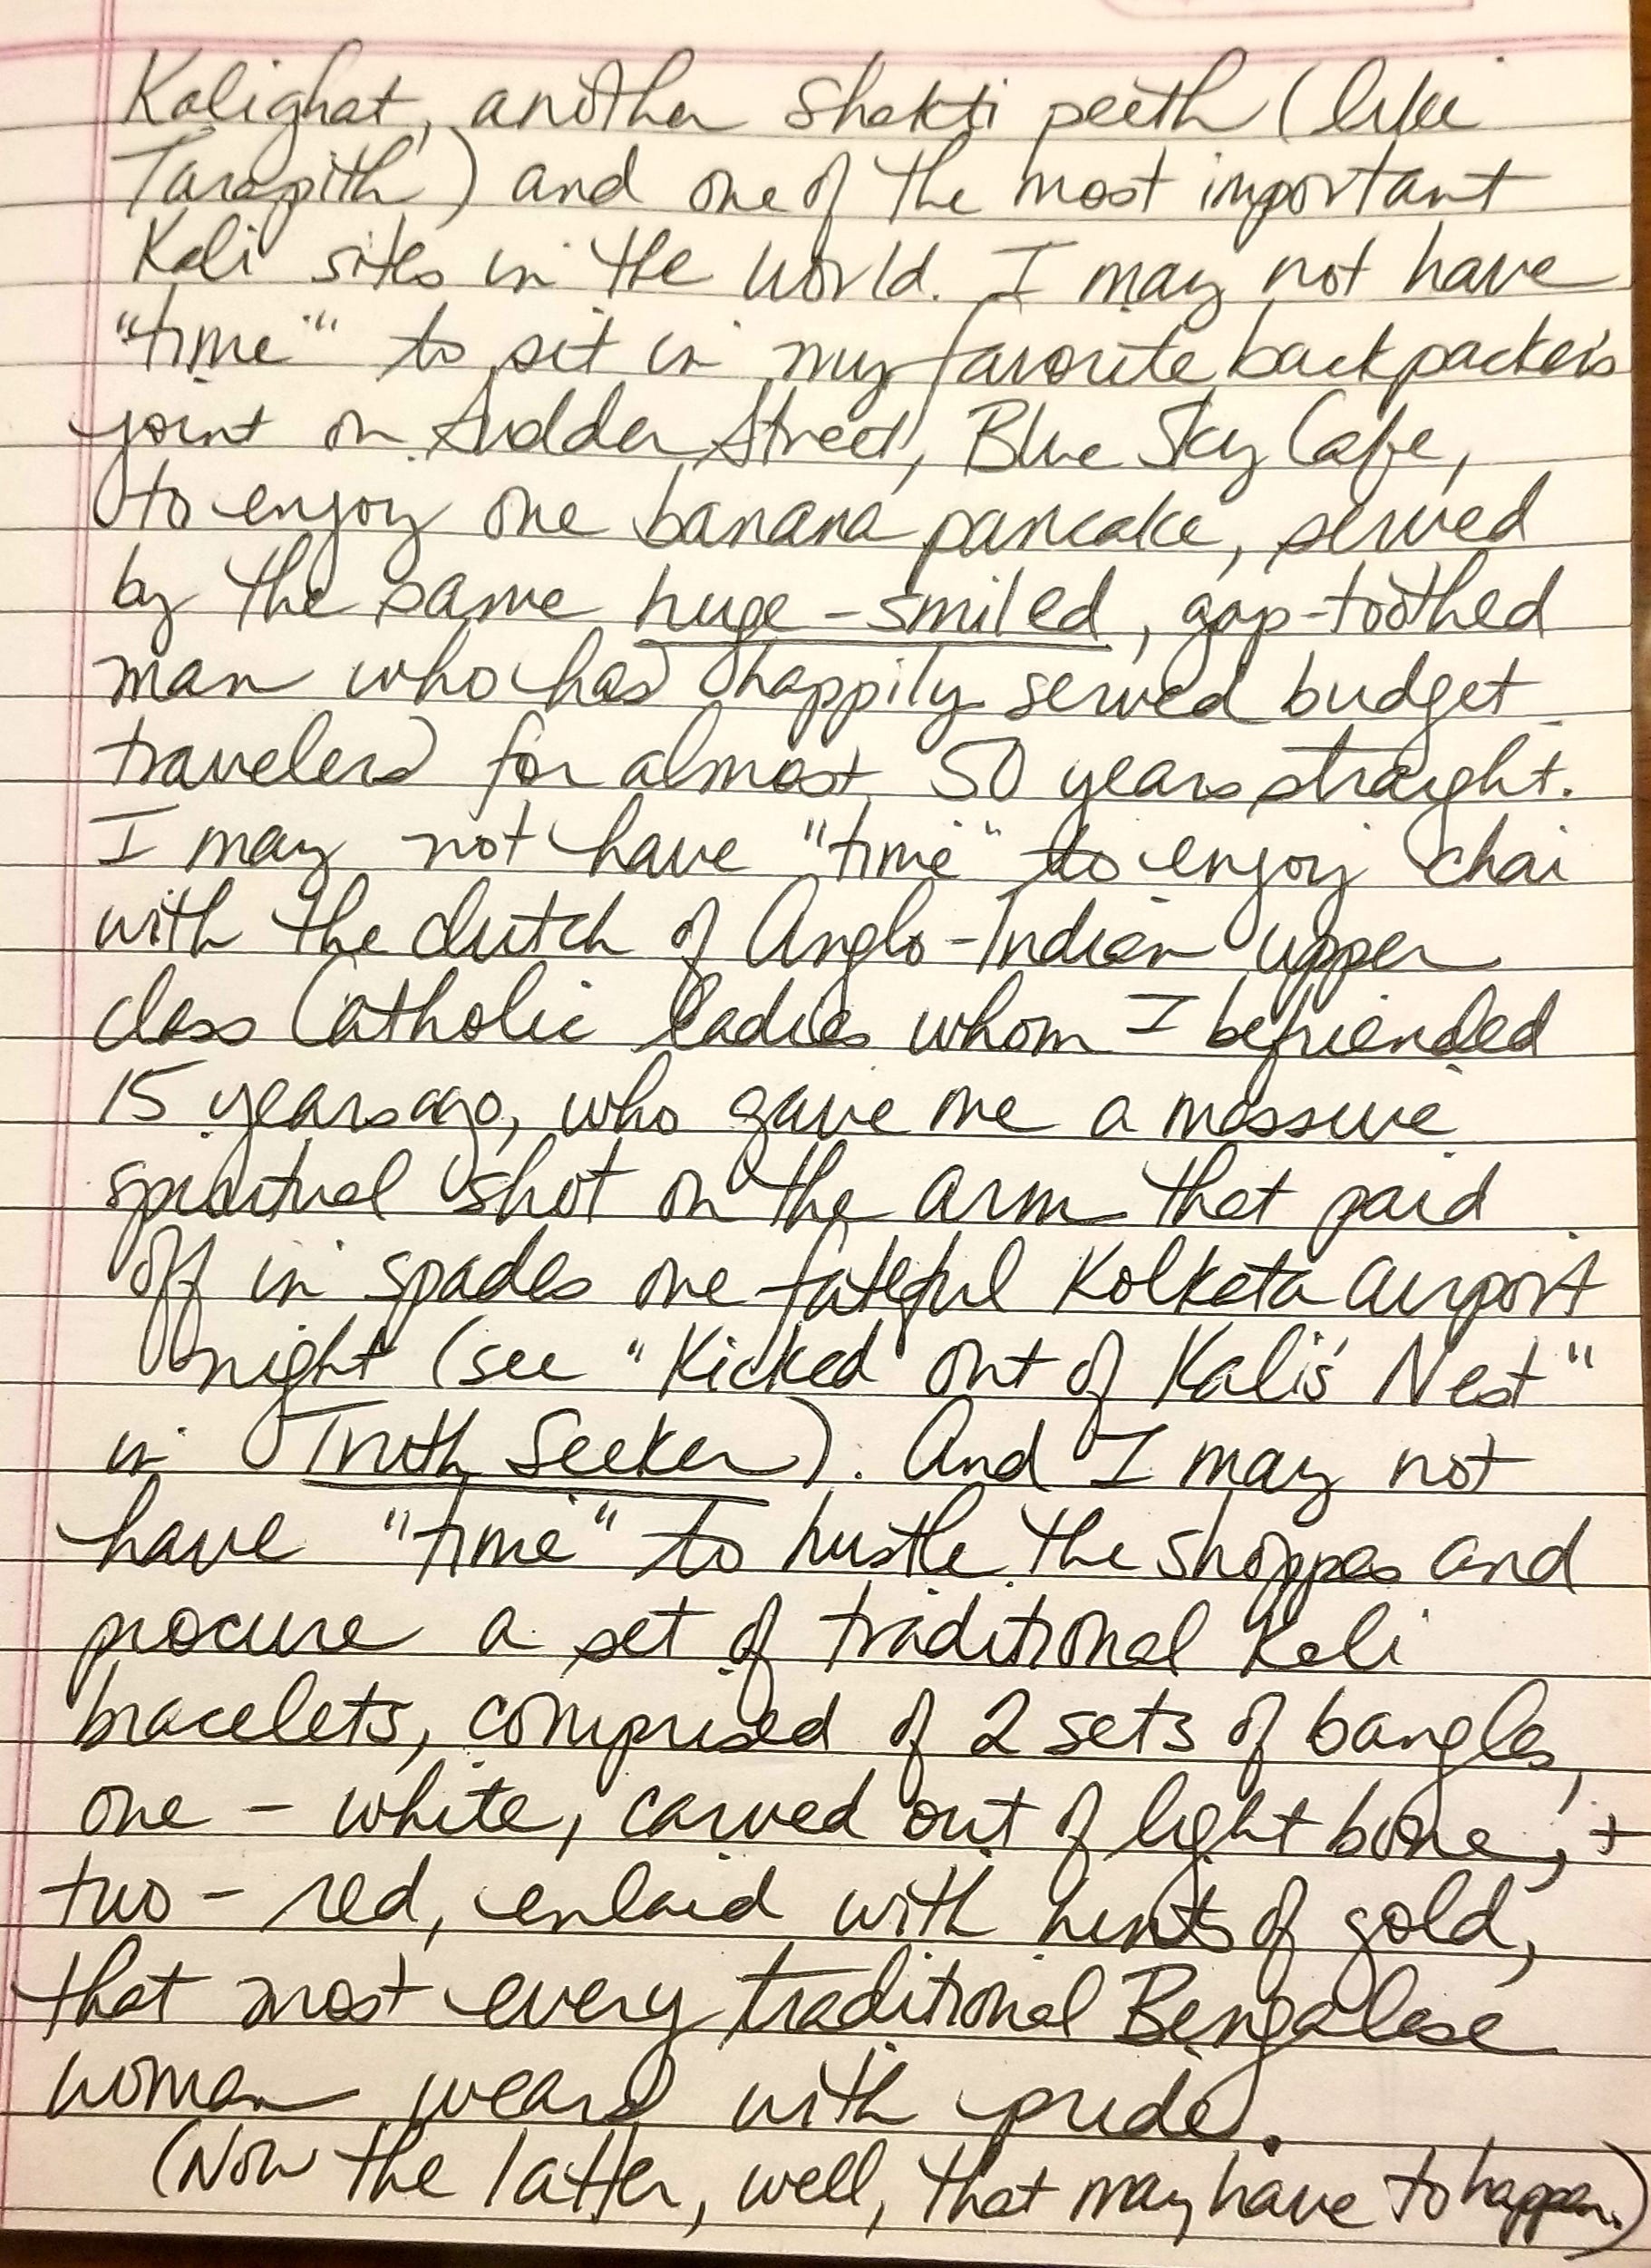 Kalighat, another Shakti peeth (like
Tarapith) and one of the most important
Kali sites in the world. I may not have
"time" to sit in my favorite backpacker's
joint on Sudder Street, Blue Sky Cafe,
to enjoy one banana pancake, served
by the same huge-smiled, gap-toothed
man who has happily served budget
travelers for almost 50 years straight.
I may not have "time" to enjoy chai
with the clutch of Anglo-Indian upper
class Catholic ladies whom I befriended
15 years ago, who gave me a massive
spiritual shot on the arm that paid
off in spades one fateful Kolkata airport
night (see "Kicked out of Kali's Nest"
in Truth Seeker). And I may not
have "time" to hustle the shoppes and
procure a set of traditional Kali
bracelets, comprised of 2 sets of bangles,
one - white, carved out of light bone, +
two - red, enlaid with hints of gold,
that most every traditional Bengalese
woman wears with pride.
(Now the latter, well, that may have to happen.)